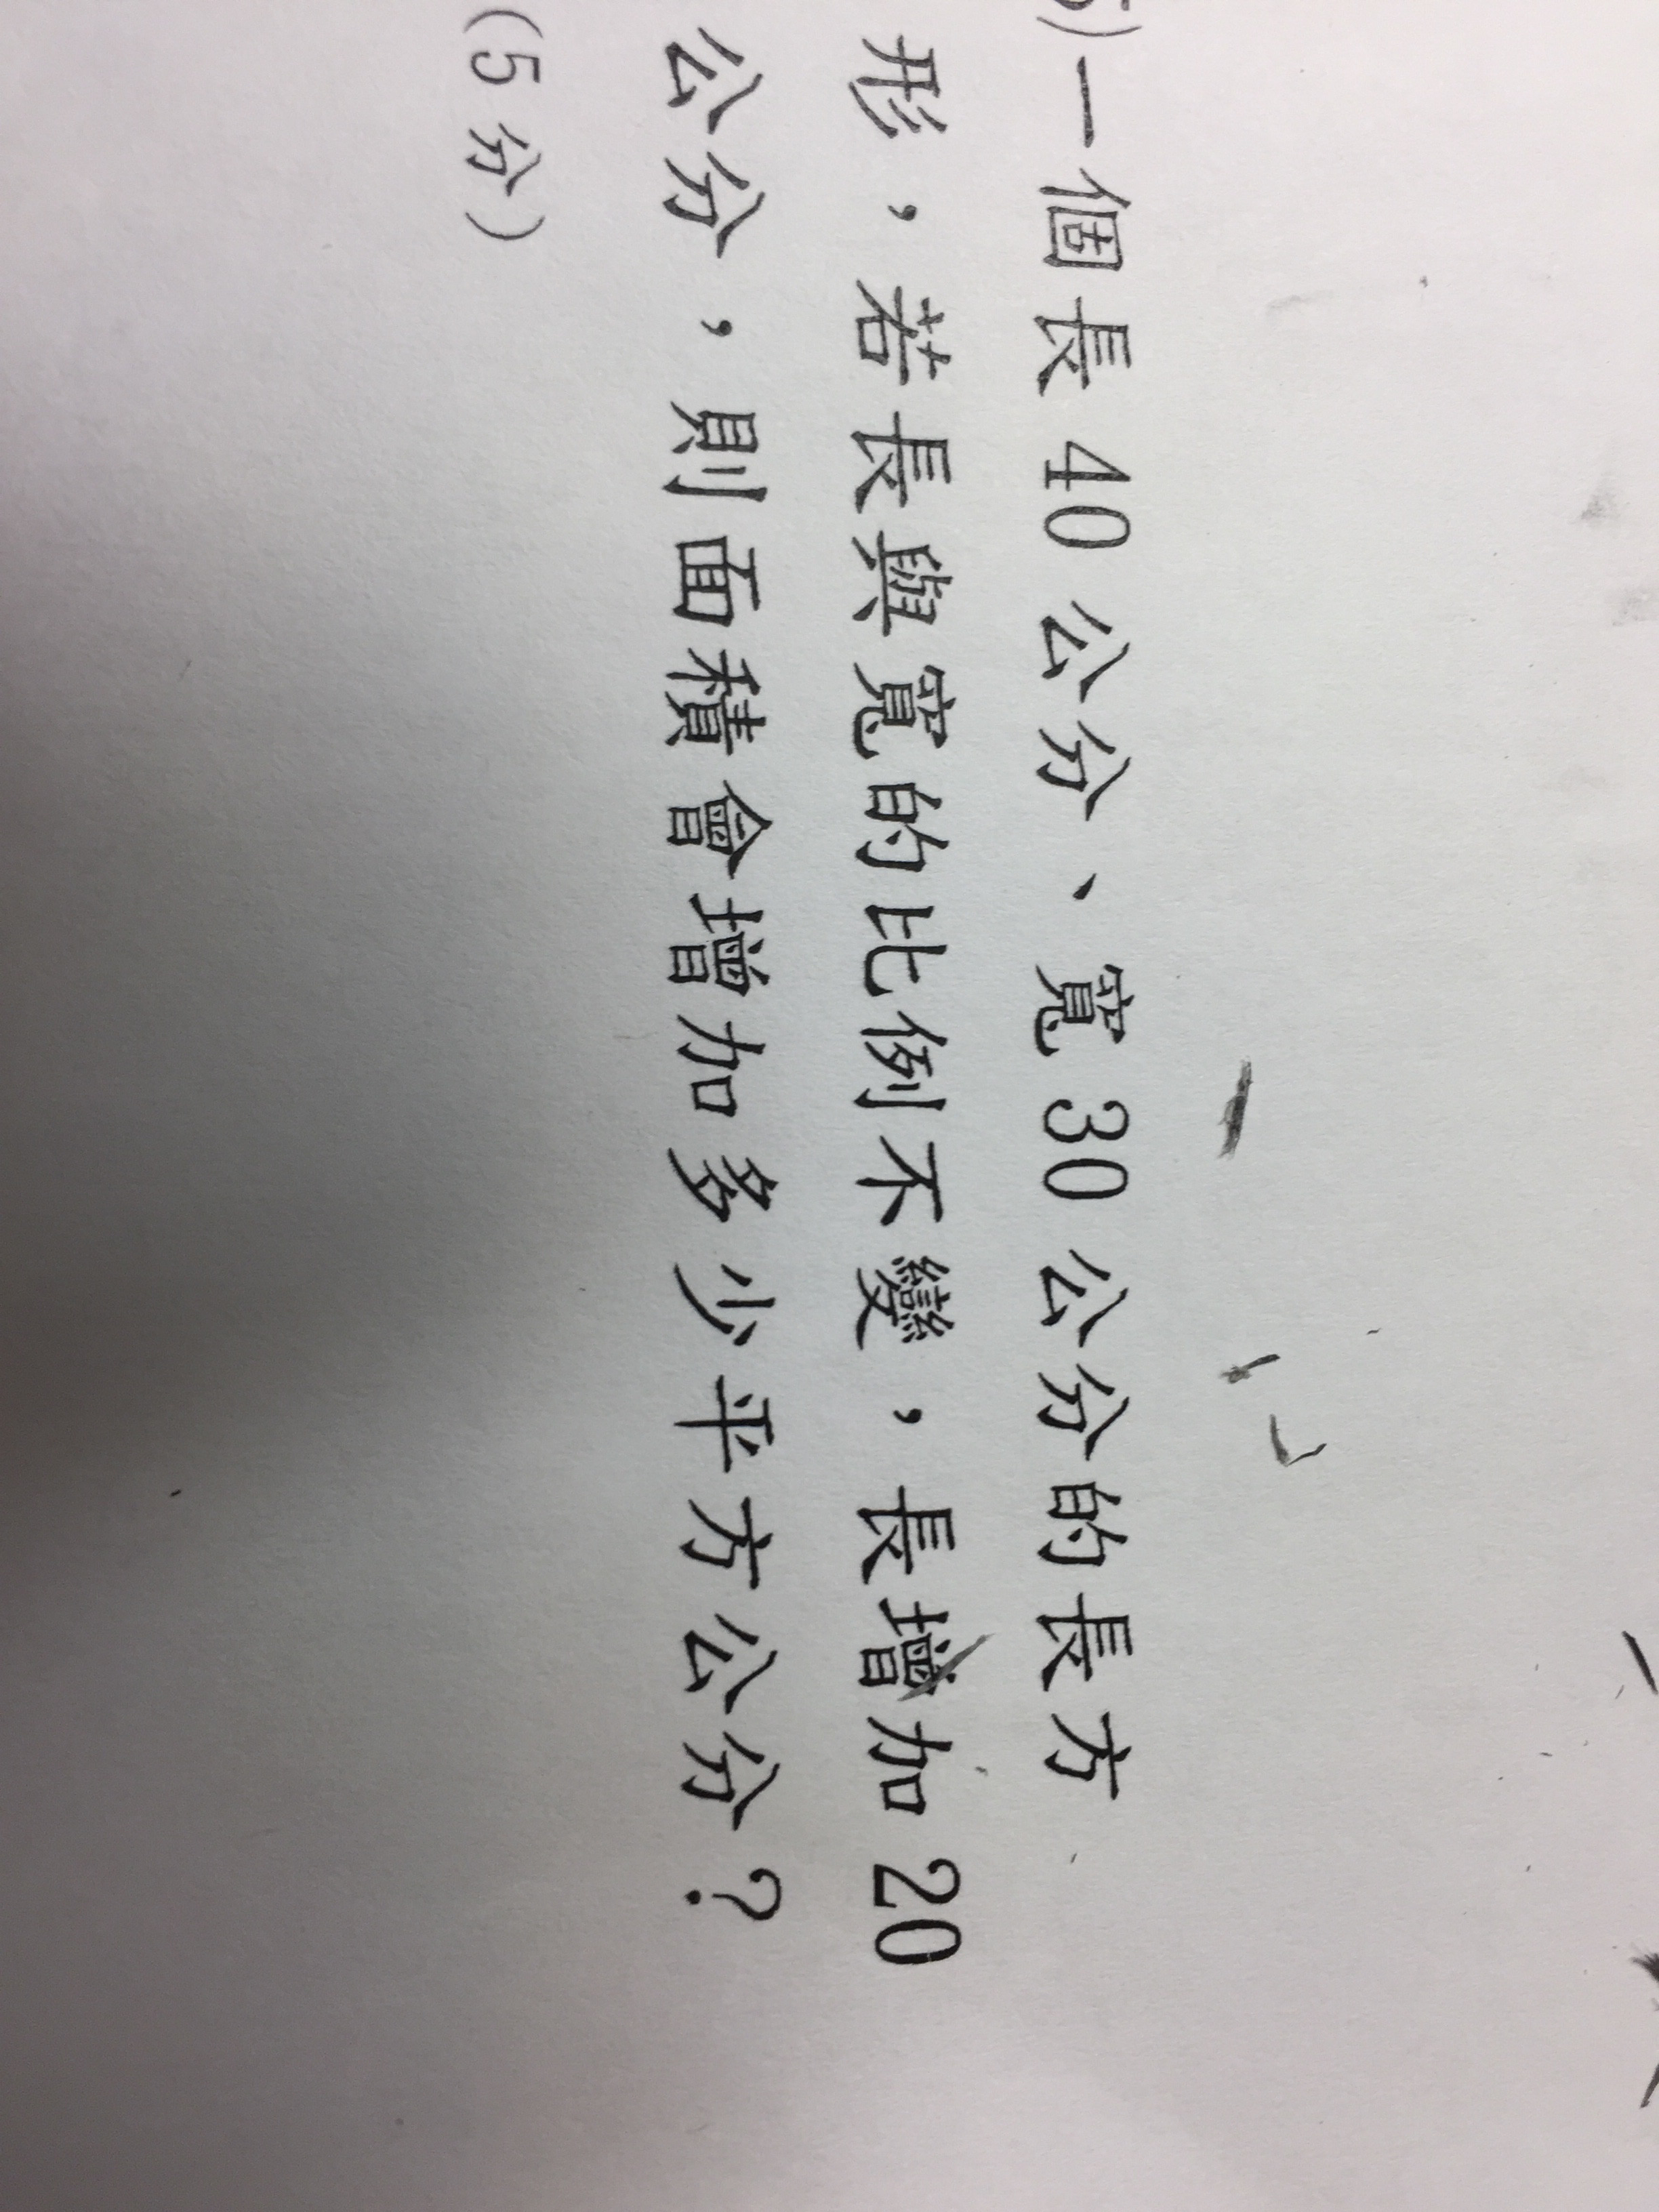 )一個長 40 公分、寬 30 公分的長方
形，若長與寬的比例不變，長增加 20
公分，則面積會增加多少平方公分？
(5 分)